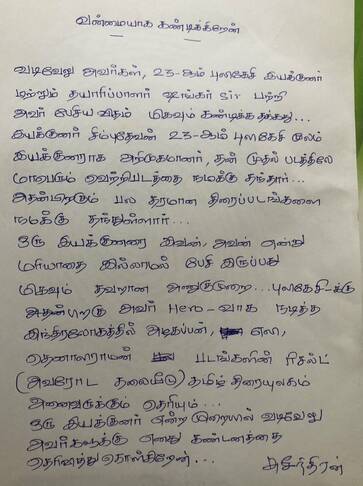 வன்மையாக கண்டிக்கிறேன்
வடிவேலு அவர்கள், 23-ஆம் புலிகேசி இயக்குனர்
மற்றும் தயாரிப்பாளர் ஷங்கர் sir பற்றி
அவர் பேசிய விதம் மிகவும் கண்டிக்க தக்கது...
இயக்குனர் சிம்புதேவன் 23-ஆம் புலிகேசி மூலம்
இயக்குனராக அறிமுகமானார், தன் முதல் படத்திலே
மாபெரும் வெற்றிபடத்தை நமக்கு தந்தார்...
அதன்பிறகும் பல தரமான திரைப்படங்களை
நமக்கு தந்துள்ளார்...
ஒரு இயக்குனரை இவன், அவன் என்று
மரியாதை இல்லாமல் பேசி இருப்பது
மிகவும் தவறான அணுகுமுறை... புலிகேசி-க்கு
அதன்பிறகு அவர் Hero-வாக நடித்த
இந்திரலோகத்தில் அழகப்பன், எலி,
தெனாலிராமன் படங்களின் ரிசல்ட்
(அவரோட தலையீடு) தமிழ் திரையுலகம்
அனைவருக்கும் தெரியும்...
ஒரு இயக்குனர் என்ற முறையில் வடிவேலு
அவர்களுக்கு எனது கண்டனத்தை
தெரிவித்து கொள்கிறேன்... சுசீந்திரன்